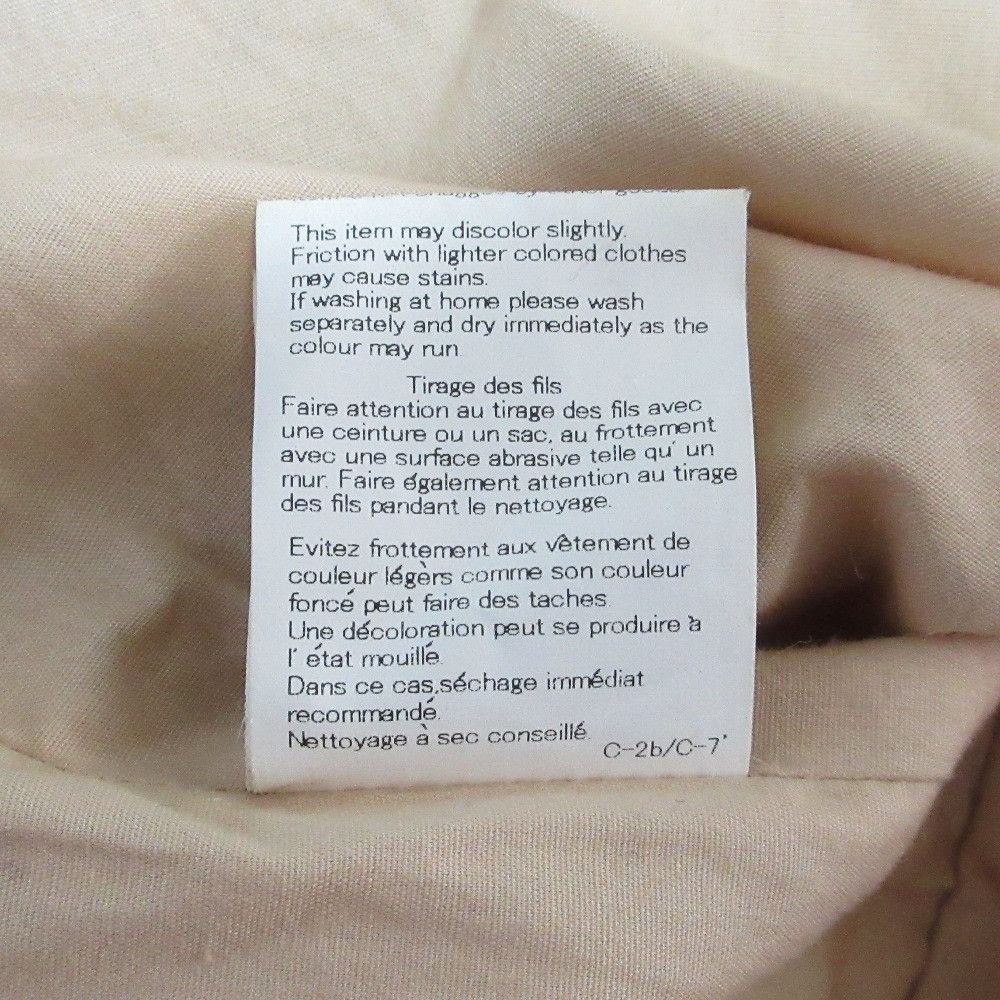 This item may discolor slightly.
Friction with lighter colored clothes
may cause stains.
If washing at home please wash
separately and dry immediately as the
colour may run.
Tirage des fils
Faire attention au tirage des fils avec
une ceinture ou un sac, au frottement
avec une surface abrasive telle qu' un
mur. Faire également attention au tirage
des fils pandant le nettoyage.
Evitez frottement aux vêtement de
couleur légèrs comme son couleur
foncé peut faire des taches.
Une décoloration peut se produire à
l' état mouillé.
Dans ce cas,séchage immédiat
recommandé.
Nettoyage à sec conseillé.
C-2b/C-7'